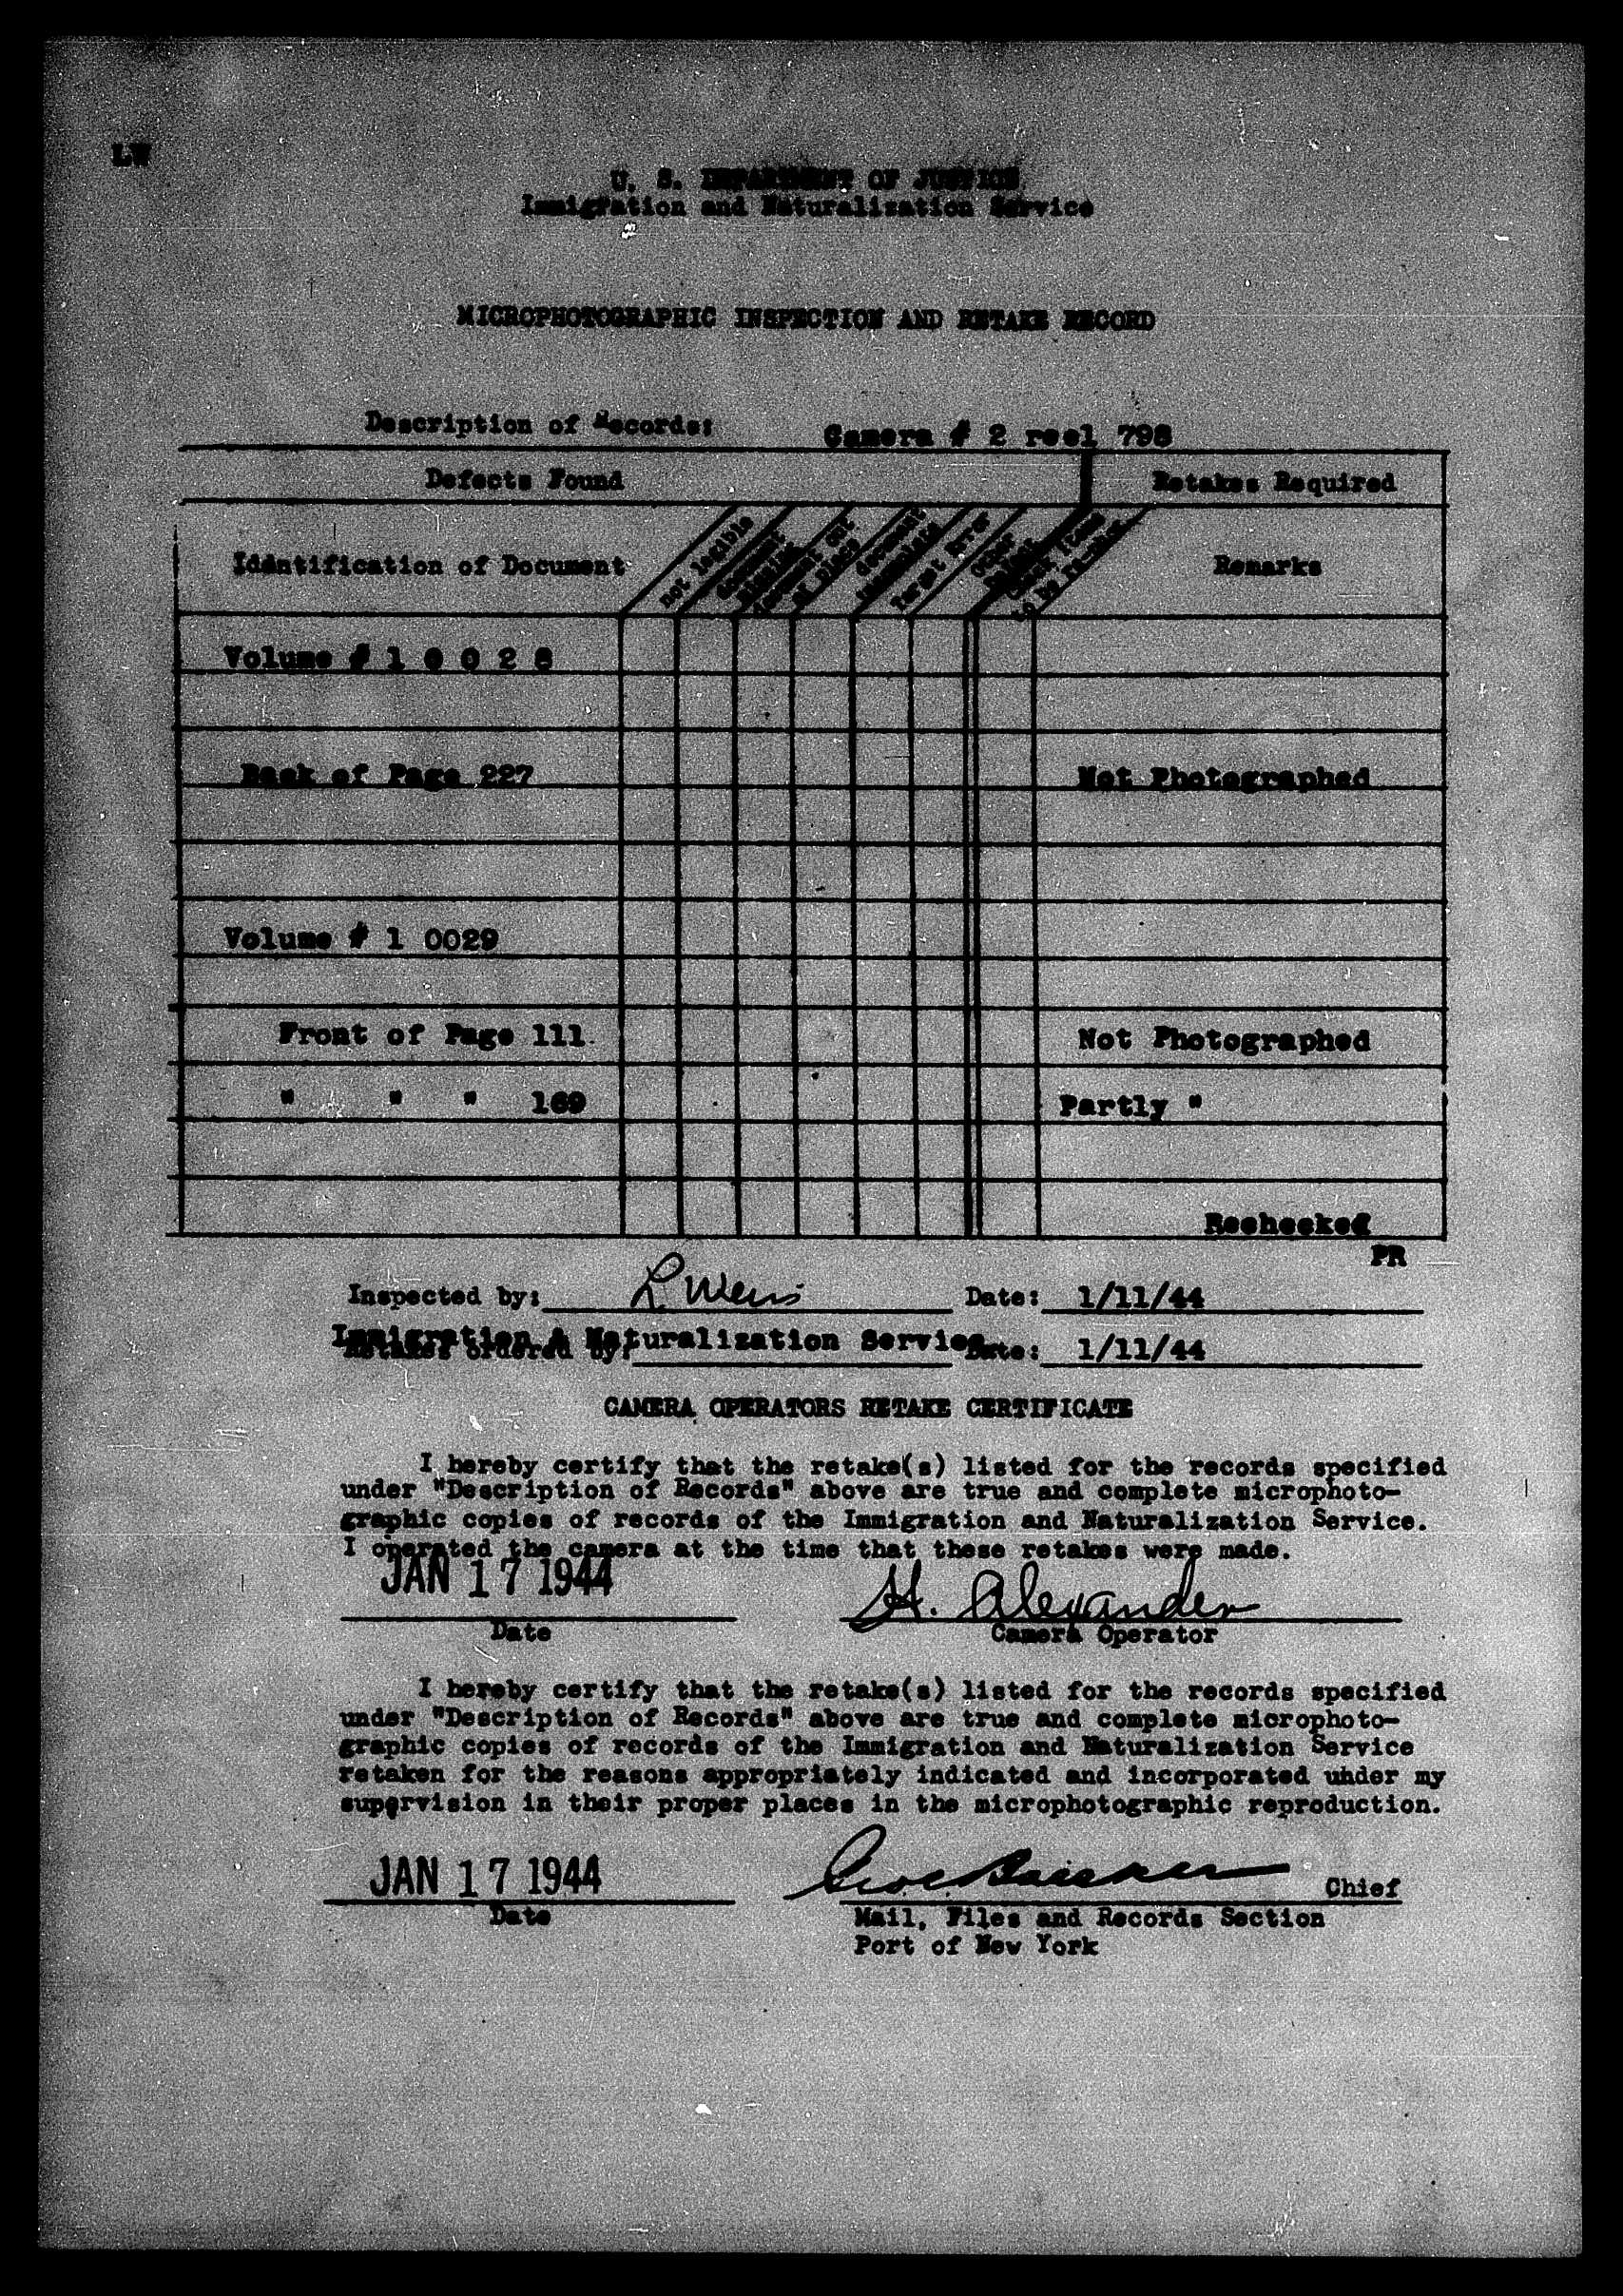 LW
U. S. DEPARTMENT OF JUSTICE
Immigration and Naturalization Service
MICROPHOTOGRAPHIC INSPECTION AND RETAKE RECORD
Description of Records: Camera # 2 reel 798
Defects Found Retakes Required
Identification of Document not legible document missing document out of place document Permit Error Other Defect Check items to be retaken Remarks
Volume # 1 0 0 2 8
Back of Page 227 Not Photographed
Volume # 1 0029
Front of Page 111 Not Photographed
" " " 169 Partly "
Rechecked
PR
Inspected by: L Weis Date: 1/11/44
Immigration & Naturalization Service
Retakes ordered by: Date: 1/11/44
CAMERA OPERATORS RETAKE CERTIFICATE
I hereby certify that the retake(s) listed for the records specified
under "Description of Records" above are true and complete microphoto-
graphic copies of records of the Immigration and Naturalization Service.
I operated the camera at the time that these retakes were made.
JAN 17 1944 H. Alexander
Date Camera Operator
I hereby certify that the retake(s) listed for the records specified
under "Description of Records" above are true and complete microphoto-
graphic copies of records of the Immigration and Naturalization Service
retaken for the reasons appropriately indicated and incorporated under my
supervision in their proper places in the microphotographic reproduction.
JAN 17 1944 Chief
Date Mail, Files and Records Section
Port of New York